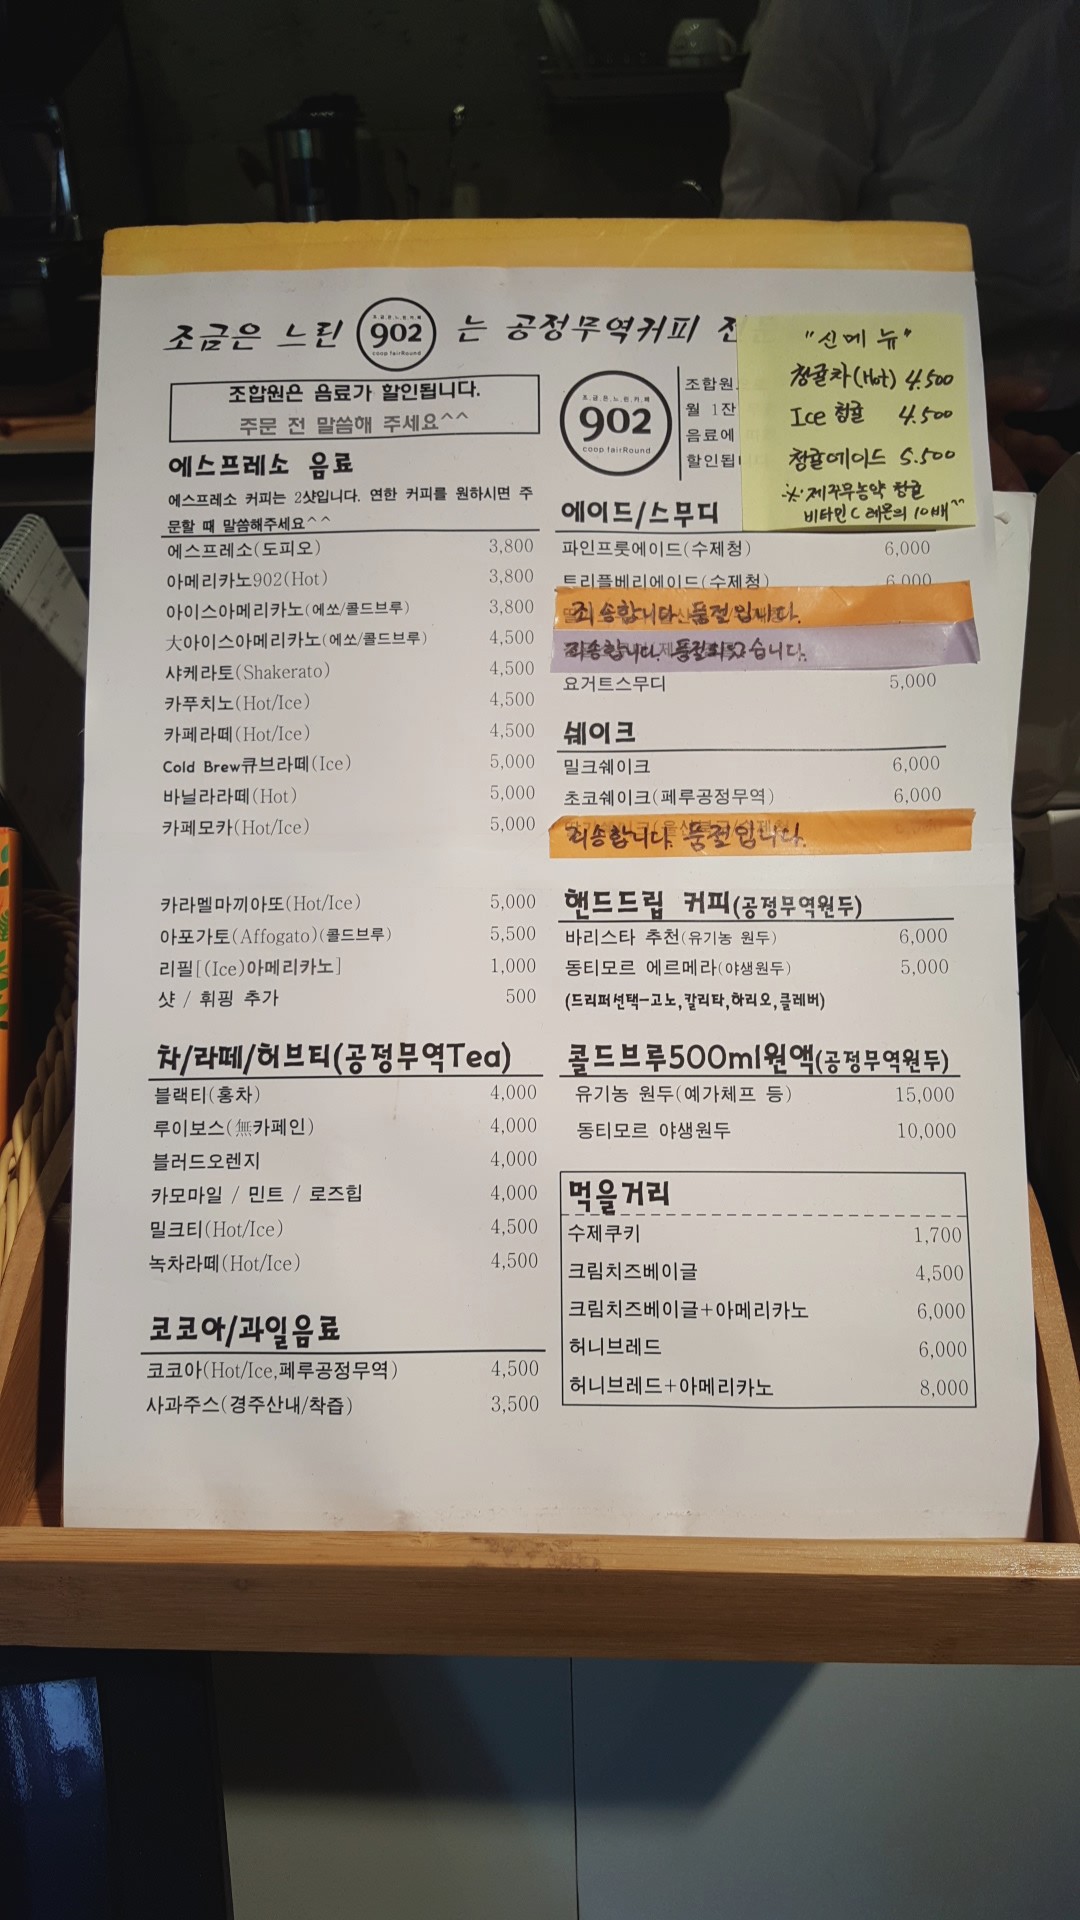 조금은 느린 902 는 공정무역커피
조.금.은.느.린.카.페
coop fairRound
조합원은 음료가 할인됩니다.
주문 전 말씀해 주세요^^
조.금.은.느.린.카.페
902
coop fairRound
조합원
월 1잔
음료에
"신메뉴"
청귤차(Hot) 4.500
Ice 청귤 4.500
청귤에이드 5.500
※. 제주무농약 청귤
비타민C 레몬의 10배^^
에스프레소 음료
에스프레소 커피는 2샷입니다. 연한 커피를 원하시면 주
문할 때 말씀해주세요^^
에스프레소(도피오) 3,800
아메리카노902(Hot) 3,800
아이스아메리카노(에쏘/콜드브루) 3,800
大아이스아메리카노(에쏘/콜드브루) 4,500
샤케라토(Shakerato) 4,500
카푸치노(Hot/Ice) 4,500
카페라떼(Hot/Ice) 4,500
Cold Brew큐브라떼(Ice) 5,000
바닐라라떼(Hot) 5,000
카페모카(Hot/Ice) 5,000
카라멜마끼아또(Hot/Ice) 5,000
아포가토(Affogato)(콜드브루) 5,500
리필[(Ice)아메리카노] 1,000
샷 / 휘핑 추가 500
차/라떼/허브티(공정무역Tea)
블랙티(홍차) 4,000
루이보스(無카페인) 4,000
블러드오렌지 4,000
카모마일 / 민트 / 로즈힙 4,000
밀크티(Hot/Ice) 4,500
녹차라떼(Hot/Ice) 4,500
코코아/과일음료
코코아(Hot/Ice,페루공정무역) 4,500
사과주스(경주산내/착즙) 3,500
에이드/스무디
파인프룻에이드(수제청) 6,000
트리플베리에이드(수제청) 6,000
죄송합니다. 품절입니다.
죄송합니다. 품절되었습니다.
요거트스무디 5,000
쉐이크
밀크쉐이크 6,000
초코쉐이크(페루공정무역) 6,000
죄송합니다. 품절입니다.
핸드드립 커피(공정무역원두)
바리스타 추천(유기농 원두) 6,000
동티모르 에르메라(야생원두) 5,000
(드리퍼선택-고노,칼리타,하리오,클레버)
콜드브루500ml원액(공정무역원두)
유기농 원두(예가체프 등) 15,000
동티모르 야생원두 10,000
먹을거리
수제쿠키 1,700
크림치즈베이글 4,500
크림치즈베이글+아메리카노 6,000
허니브레드 6,000
허니브레드+아메리카노 8,000